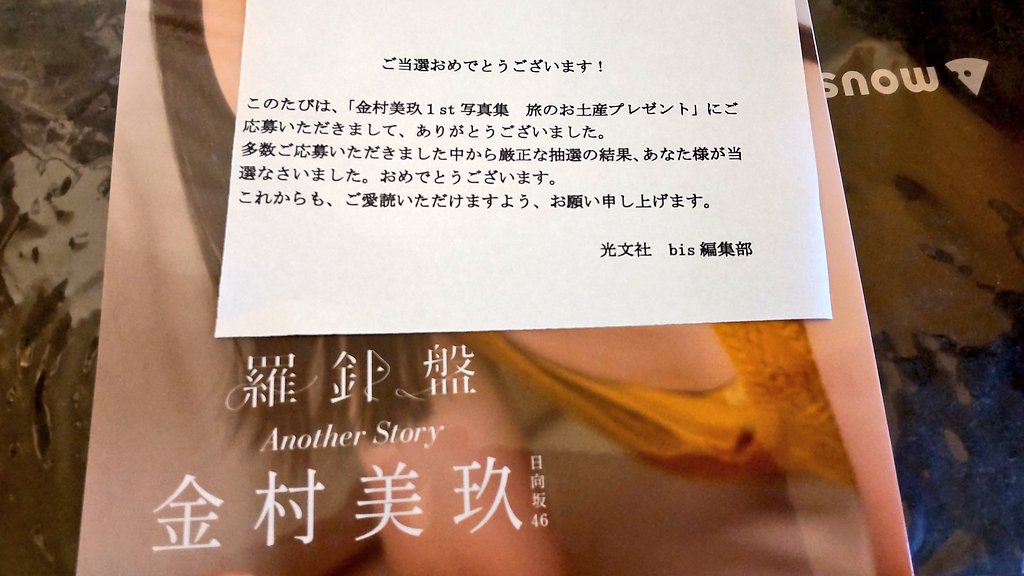 ご当選おめでとうございます！
このたびは、「金村美玖１ｓｔ写真集　旅のお土産プレゼント」にご
応募いただきまして、ありがとうございました。
多数ご応募いただきました中から厳正な抽選の結果、あなた様が当
選なさいました。おめでとうございます。
これからも、ご愛読いただけますよう、お願い申し上げます。
光文社　bis 編集部
snow
羅針盤
Another Story
金村美玖
日向坂46